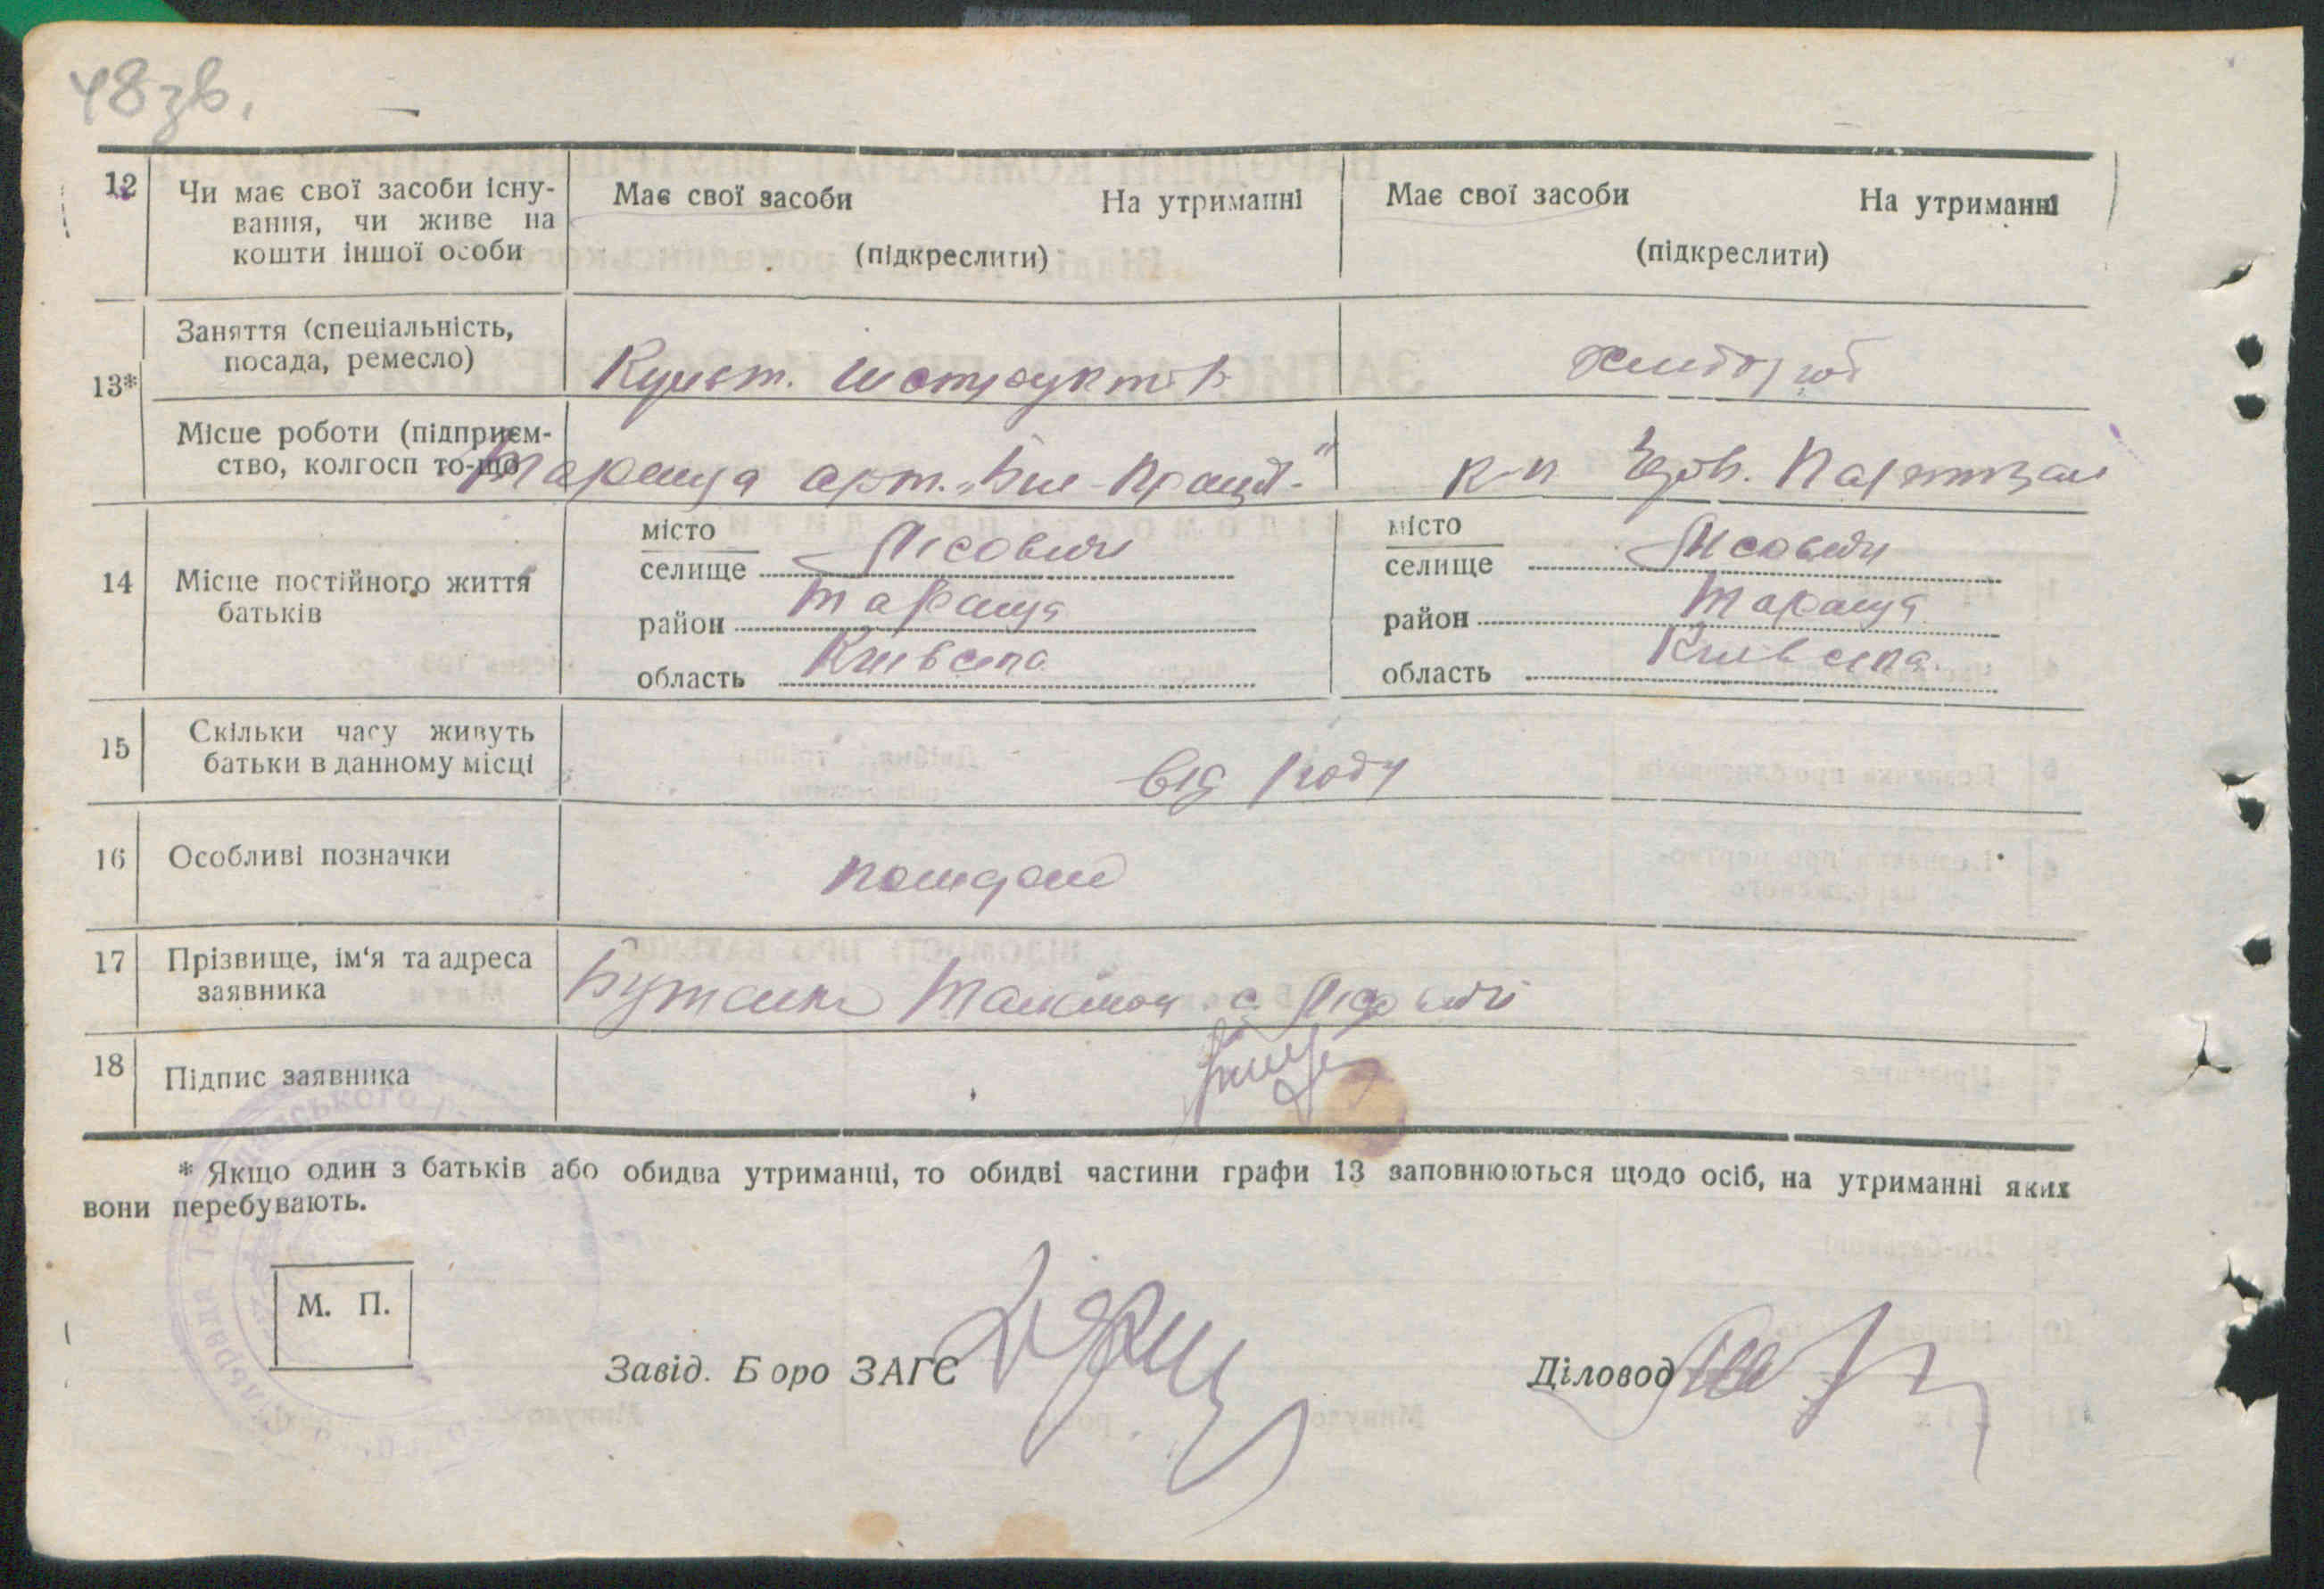 48 зв.
12 Чи має свої засоби існу-
вання, чи живе на
кошти іншої особи
Має свої засоби На утриманні
(підкреслити)
Має свої засоби На утриманні
(підкреслити)
13*
Заняття (спеціальність,
посада, ремесло)
Культ. Інструктор
хлібороб
Місце роботи (підприєм-
ство, колгосп то-що
Тараща арт.
к-п Черв. Партизан
14 Місце постійного життя
батьків
місто
селище Лісовичі
район Тараща
область Київська
місто
селище Лісовичі
район Тараща
область Київська
15 Скільки часу живуть
батьки в данному місці
від роду
16 Особливі позначки
17 Прізвище, ім'я та адреса
заявника
с. Лісовичі
18 Підпис заявника
* Якщо один з батьків або обидва утриманці, то обидві частини графи 13 заповнюються щодо осіб, на утриманні яких
вони перебувають.
М. П.
Завід. Б оро ЗАГС
Діловод